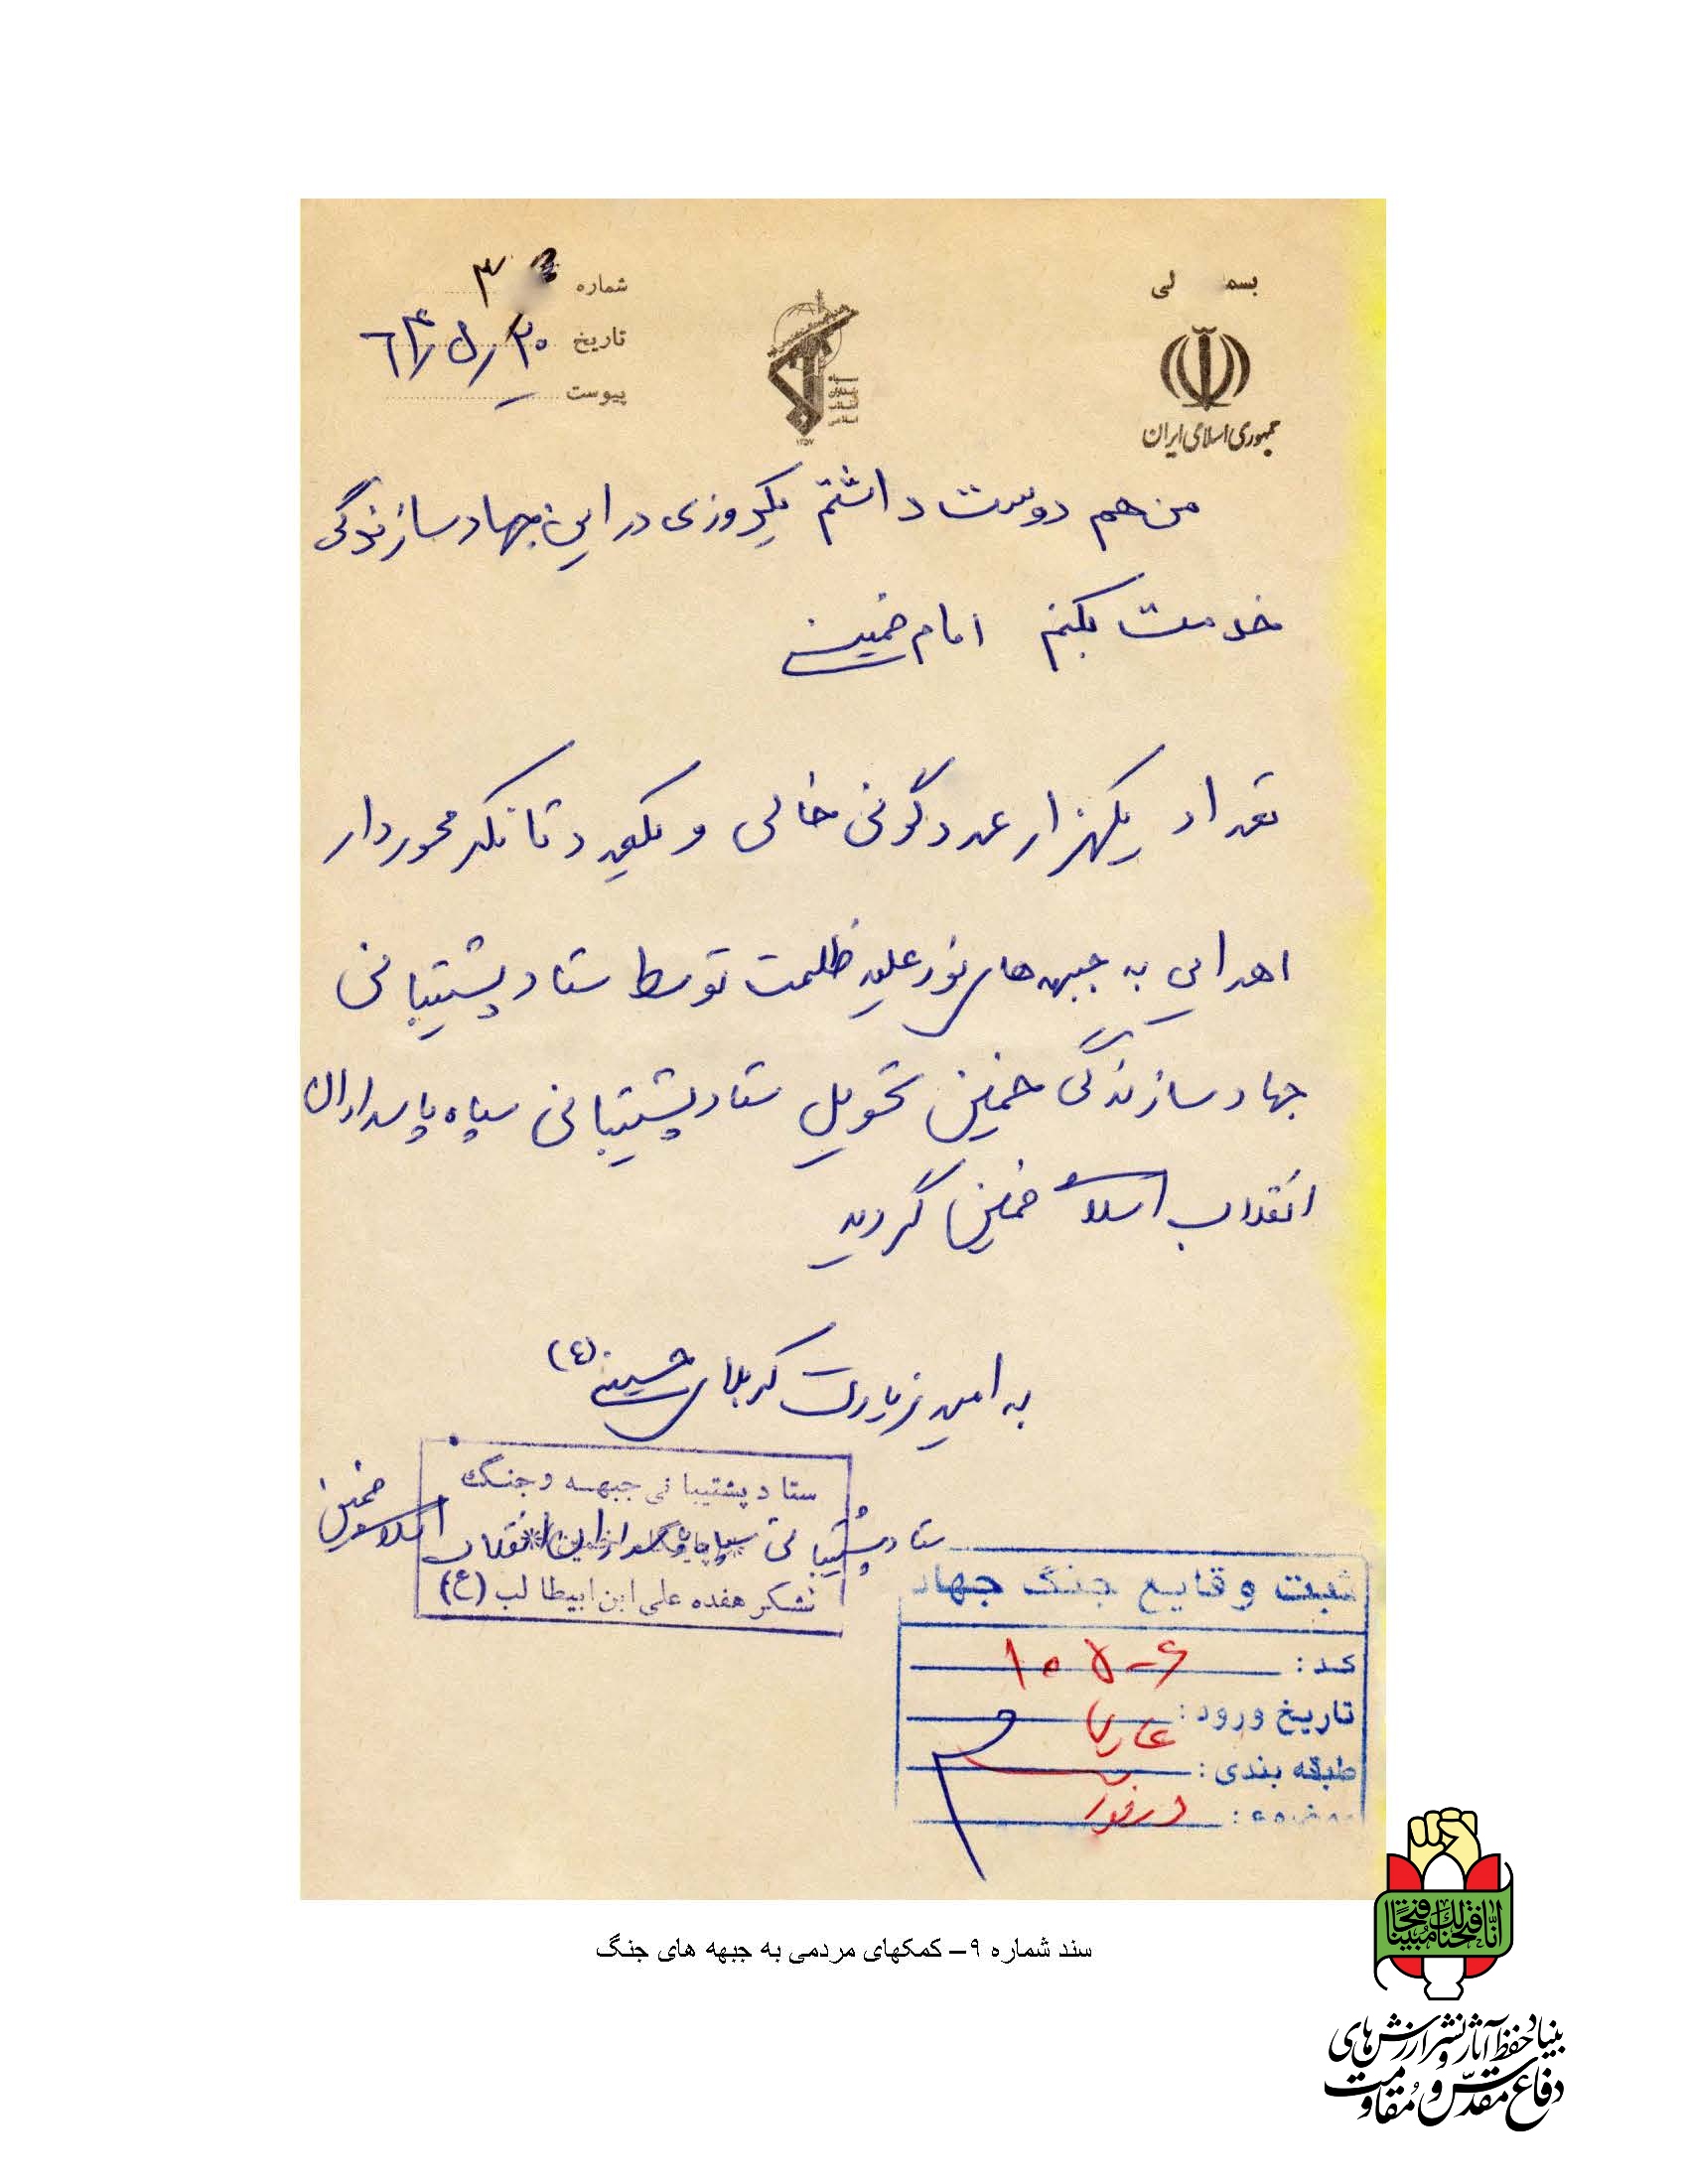 بسمه تعالی
جمهوری اسلامی ایران
شماره ۳
تاریخ ۶۴/۵/۲۰
پیوست
من هم دوست داشتم یکروزی در این جهاد سازندگی
خدمت بکنم امام خمینی
تعداد یکهزار عدد گونی خالی و یکعدد تانکر محوردار
اهدایی به جبهه های نور علیه ظلمت توسط ستاد پشتیبانی
جهاد سازندگی خمین تحویل ستاد پشتیبانی سپاه پاسداران
انقلاب اسلامی خمین گردید
به امید زیارت کربلای حسینی (ع)
ستاد پشتیبانی سپاه پاسداران انقلاب اسلامی خمین
ستاد پشتیبانی جبهه و جنگ
لشکر هفده علی ابن ابیطالب (ع)
ثبت وقایع جنگ جهاد
کد: ۱۰۵-۶
تاریخ ورود:
طبقه بندی:
موضوع:
سند شماره ۹ – کمکهای مردمی به جبهه های جنگ
انا فتحنا لک فتحا مبینا
بنیاد حفظ آثار و نشر ارزش‌های
دفاع مقدّس و مقاومت